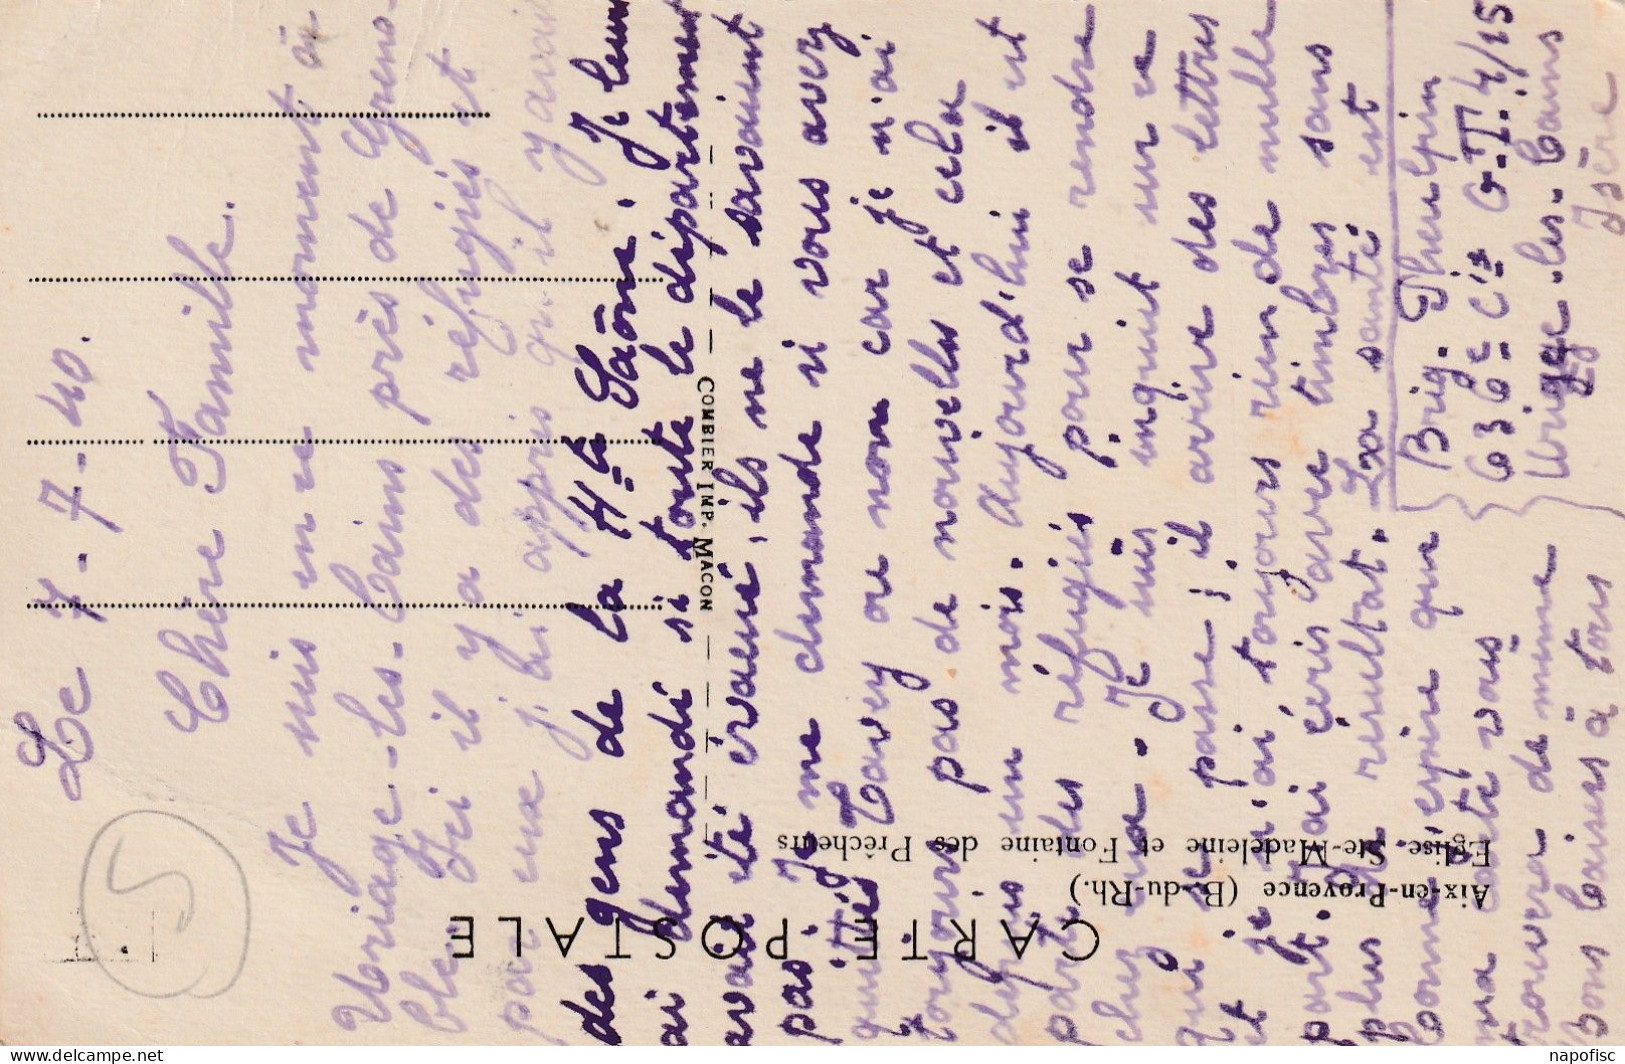 Le 7-7-40.
Chère Famille.
Je suis en ce moment à
Uriage-les-bains près de Greno-
ble. Ici il y a des réfugiés et
par eux j'ai appris qu'il y avait
des gens de la Hte Saône. Je leur
ai demandé si toute le département
avait été évacué, ils ne le savaient
pas. Je me demande si vous avez
quittés Tavey ou non car je n'ai
toujours pas de nouvelles et cela
depuis un mois. Aujourd'hui il est
parti des réfugiés pour se rendre
chez eux. Je suis inquiet sur ce
qui se passe; il arrive des lettres
et je n'ai toujours rien de nulle
part. J'ai écris avec timbres sans
plus de résultat. La santé est
bonne j'espère que
ma carte vous
trouvera de même
bons baisers à tous
Brig. Pheulpin
636e Cie G.T. 4/15
Uriage-les-bains
Isère
CARTE POSTALE
Aix-en-Provence (B.-du-Rh.)
Eglise Ste-Madeleine et Fontaine des Prêcheurs
COMBIER IMP. MACON
5
napofisc